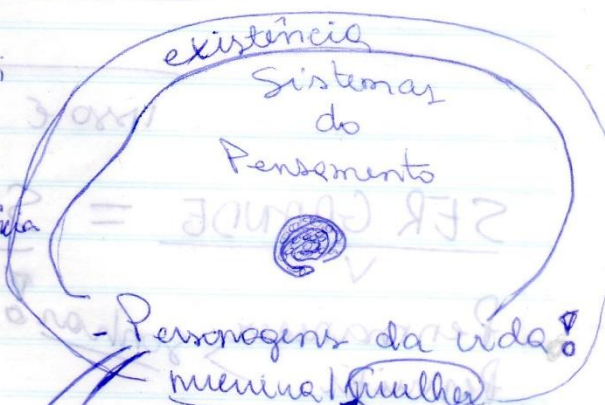 existência
Sistemas
do
Pensamento
- Personagens da vida!
menina | mulher